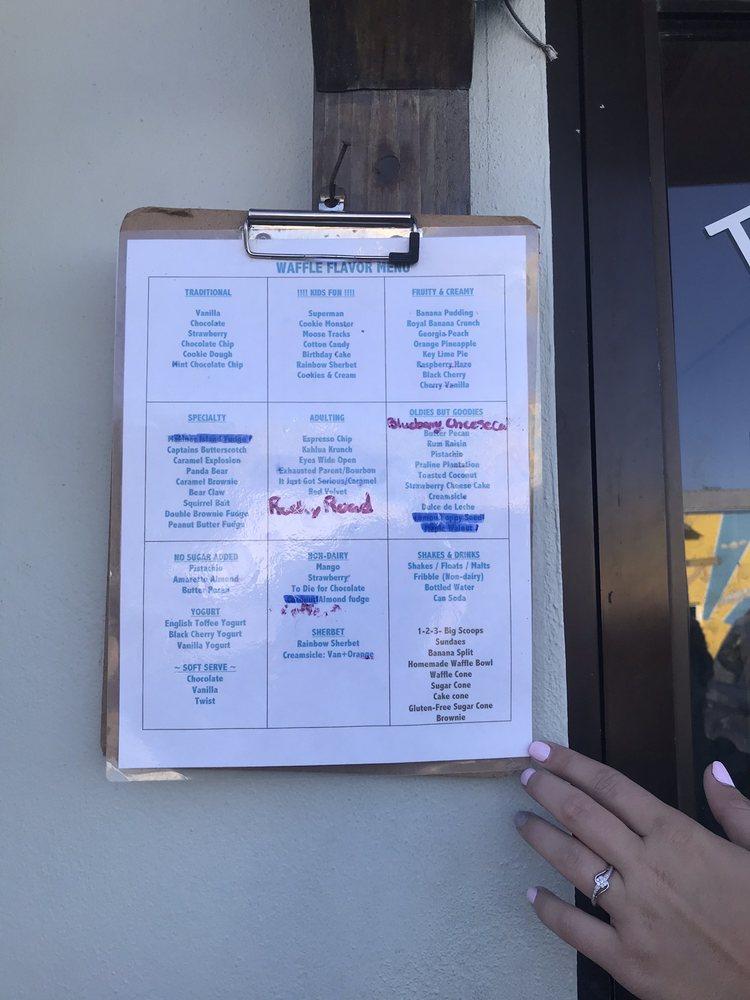 WAFFLE FLAVOR MENU
TRADITIONAL
Vanilla
Chocolate
Strawberry
Chocolate Chip
Cookie Dough
Mint Chocolate Chip
!!!! KIDS FUN !!!!
Superman
Cookie Monster
Moose Tracks
Cotton Candy
Birthday Cake
Rainbow Sherbet
Cookies & Cream
FRUITY & CREAMY
Banana Pudding
Royal Banana Crunch
Georgia Peach
Orange Pineapple
Key Lime Pie
Raspberry Haze
Black Cherry
Cherry Vanilla
SPECIALTY
Island Fudge
Captains Butterscotch
Caramel Explosion
Panda Bear
Caramel Brownie
Bear Claw
Squirrel Bait
Double Brownie Fudge
Peanut Butter Fudge
ADULTING
Espresso Chip
Kahlua Krunch
Eyes Wide Open
Exhausted Parent/Bourbon
It Just Got Serious/Caramel
Red Velvet
Rocky Road
OLDIES BUT GOODIES
Blueberry Cheeseca
Butter Pecan
Rum Raisin
Pistachio
Praline Plantation
Toasted Coconut
Strawberry Cheese Cake
Creamsicle
Dulce de Leche
Lemon Poppy Seed
Maple Walnut
NO SUGAR ADDED
Pistachio
Amaretto Almond
Butter Pecan
YOGURT
English Toffee Yogurt
Black Cherry Yogurt
Vanilla Yogurt
~ SOFT SERVE ~
Chocolate
Vanilla
Twist
NON-DAIRY
Mango
Strawberry
To Die for Chocolate
Almond fudge
SHERBET
Rainbow Sherbet
Creamsicle: Van+Orange
SHAKES & DRINKS
Shakes / Floats / Malts
Fribble (Non-dairy)
Bottled Water
Can Soda
1-2-3- Big Scoops
Sundaes
Banana Split
Homemade Waffle Bowl
Waffle Cone
Sugar Cone
Cake cone
Gluten-Free Sugar Cone
Brownie
T